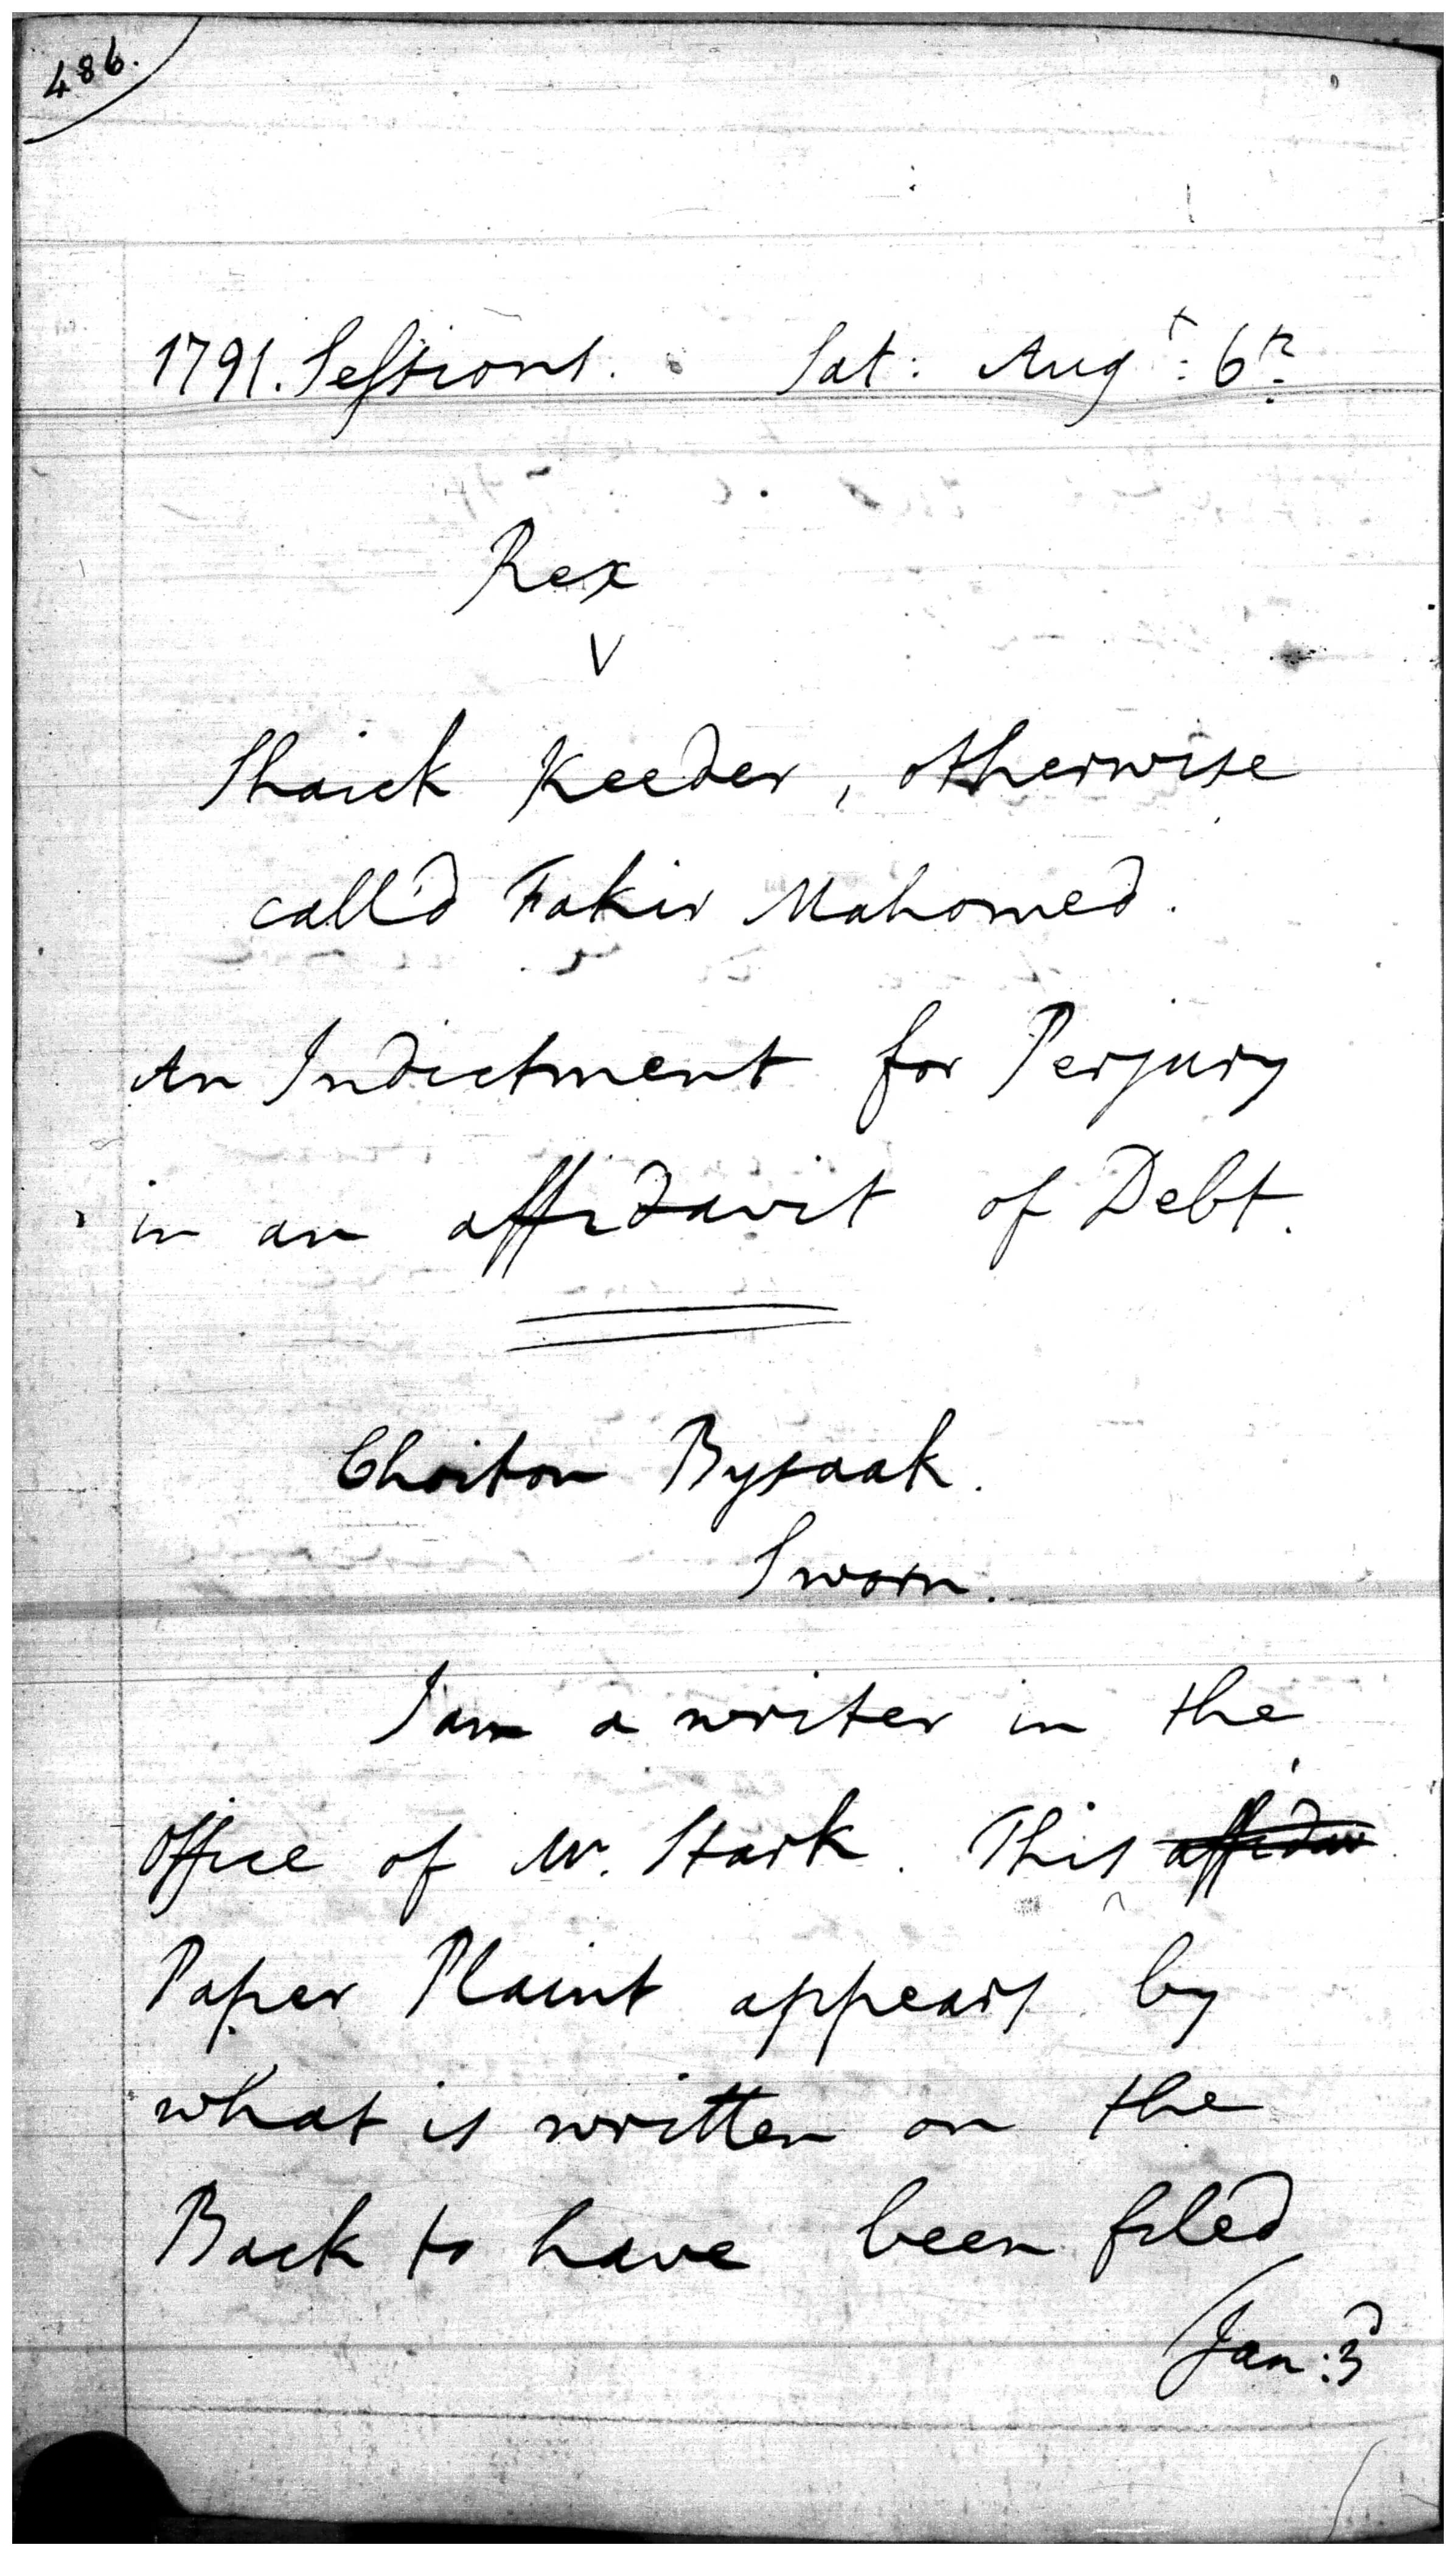 486.
1791. Sessions. Sat: Augt: 6th
Rex
V
Shaick Keeder, otherwise
call'd Fakir Mahomed.
An Indictment for Perjury
in an affidavit of Debt.
Choiton Bysaak.
Sworn.
I am a writer in the
office of Mr. Stark. This affidav
Paper Plaint appears by
what is written on the
Back to have been filed
Jan: 3d